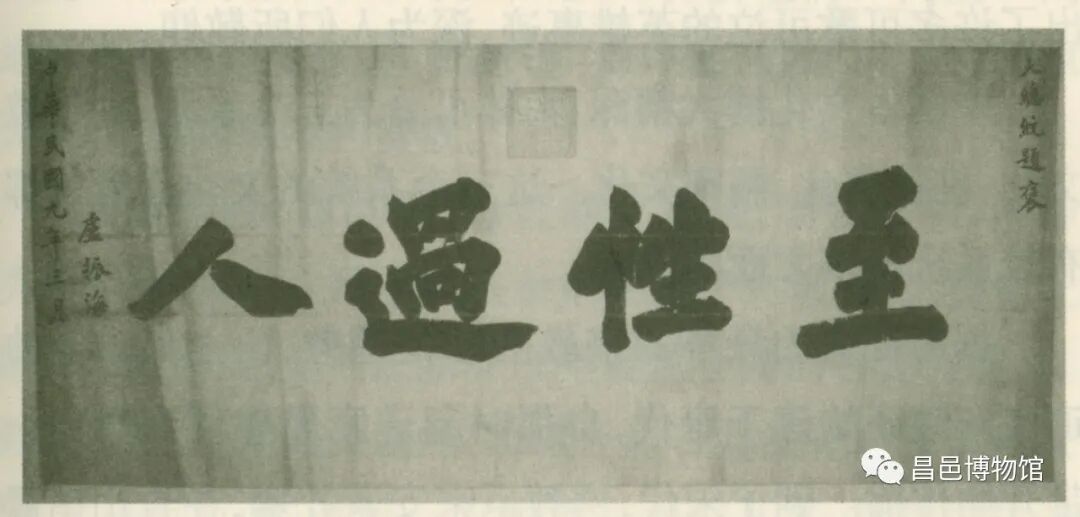 大總統題褒
至性過人
盧振海
中華民國九年三月
昌邑博物馆